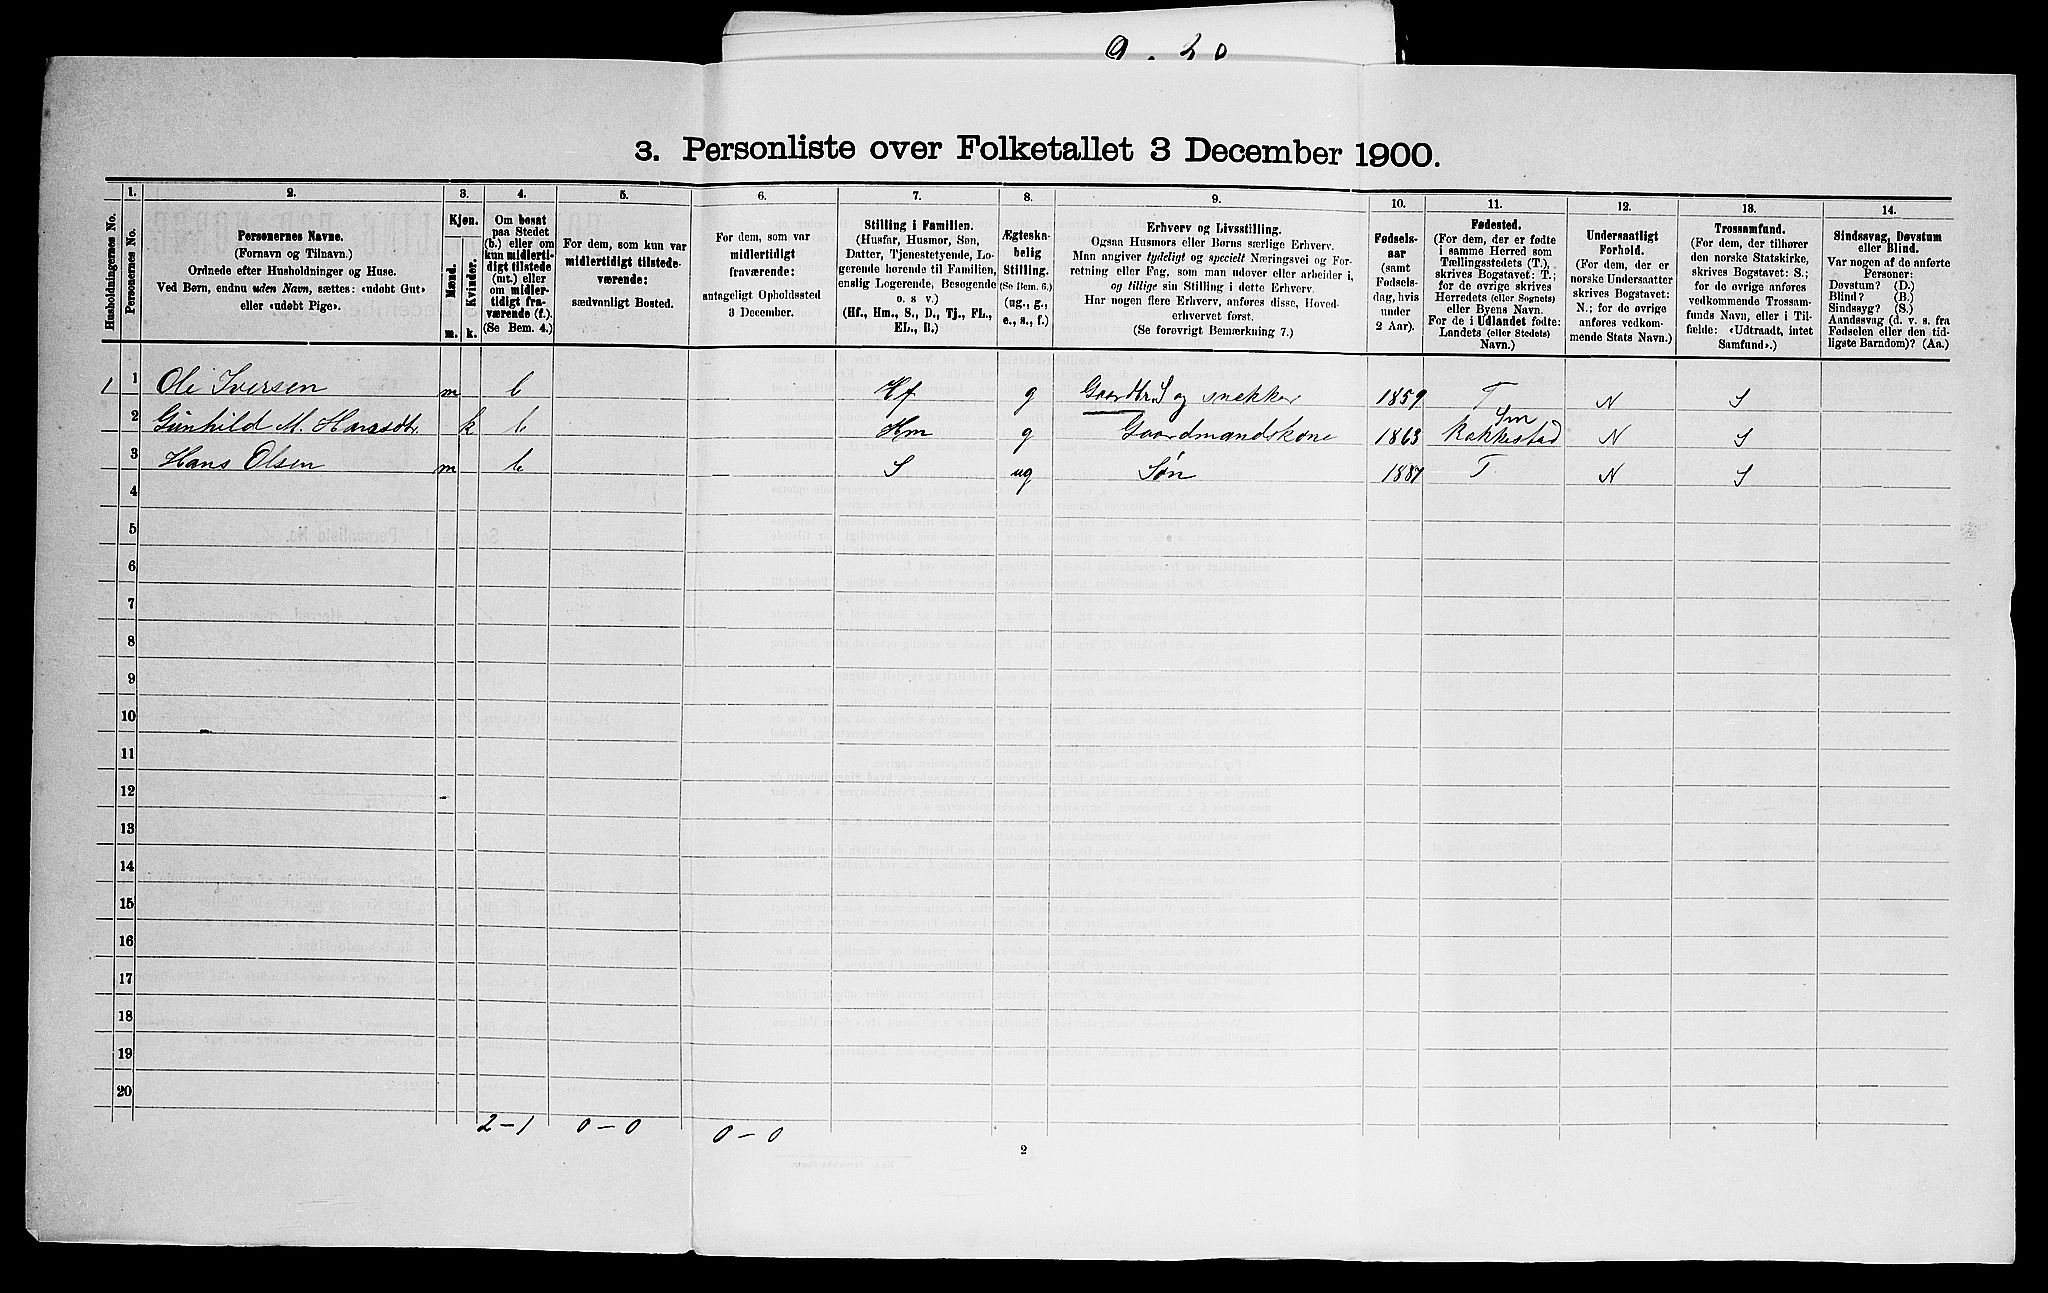 9. 20
3. Personliste over Folketallet 3 December 1900.
1. 2. 3. 4. 5. 6. 7. 8. 9. 10. 11. 12. 13. 14.
Husholdningernes No.
Personernes No.
Personernes Navne.
(Fornavn og Tilnavn.)
Ordnede efter Husholdninger og Huse.
Ved Børn, endnu uden Navn, sættes: «udøbt Gut»
eller «udøbt Pige».
Kjøn.
Mænd.
Kvinder.
m. k.
Om bosat
paa Stedet
(b.) eller om
kun midlerti-
digt tilstede
(mt.) eller
om midler-
tidigt fra-
værende (f.).
(Se Bem. 4.)
For dem, som kun var
midlertidigt tilstede-
værende:
sædvanligt Bosted.
For dem, som var
midlertidigt
fraværende:
antageligt Opholdssted
3 December.
Stilling i Familien.
(Husfar, Husmor, Søn,
Datter, Tjenestetyende, Lo-
gerende hørende til Familien,
enslig Logerende, Besøgende
o. s v.)
(Hf., Hm., S., D., Tj., FL.,
EL., B.)
Ægteska-
belig
Stilling.
(Se Bem. 6.)
(ug., g.,
e., s., f.)
Erhverv og Livsstilling.
Ogsaa Husmors eller Børns særlige Erhverv.
Man angiver tydeligt og specielt Næringsvei og For-
retning eller Fag, som man udover eller arbeider i,
og tillige sin Stilling i dette Erhverv.
Har nogen flere Erhverv, anføres disse, Hoved-
erhvervet først.
(Se forøvrigt Bemærkning 7.)
Fødsels-
aar
(samt
Fødsels-
dag, hvis
under
2 Aar).
Fødested.
(For dem, der er fødte
i samme Herred som
Tællingsstedets (T.),
skrives Bogstavet: T.;
for de øvrige skrives
Herredets (eller Sognets)
eller Byens Navn.
For de i Udlandet fødte:
Landets (eller Stedets)
Navn.)
Undersaatligt
Forhold.
(For dem, der er
norske Undersaatter
skrives Bogstavet:
N.; for de øvrige
anføres vedkom-
mende Stats Navn.)
Trossamfund.
(For dem, der tilhører
den norske Statskirke,
skrives Bogstavet: S.;
for de øvrige anføres
vedkommende Trossam-
funds Navn, eller i Til-
fælde: «Udtraadt, intet
Samfund».)
Sindssvag, Døvstum
eller Blind.
Var nogen af de anførte
Personer:
Døvstum? (D.)
Blind? (B.)
Sindssyg? (S.)
Aandssvag (d. v. s. fra
Fødselen eller den tid-
ligste Barndom)? (Aa.)
1 1 Ole Iversen m b Hf g Gaardbr. S og snekker 1859 T N S
2 Gunhild M. Hansdtr. k b Hm g Gaardmandskone 1863 Rakkestad Sm N S
3 Hans Olsen m b S ug Søn 1887 T N S
4
5
6
7
8
9
10
11
12
13
14
15
16
17
18
19
20
2-1 0-0 0-0
2